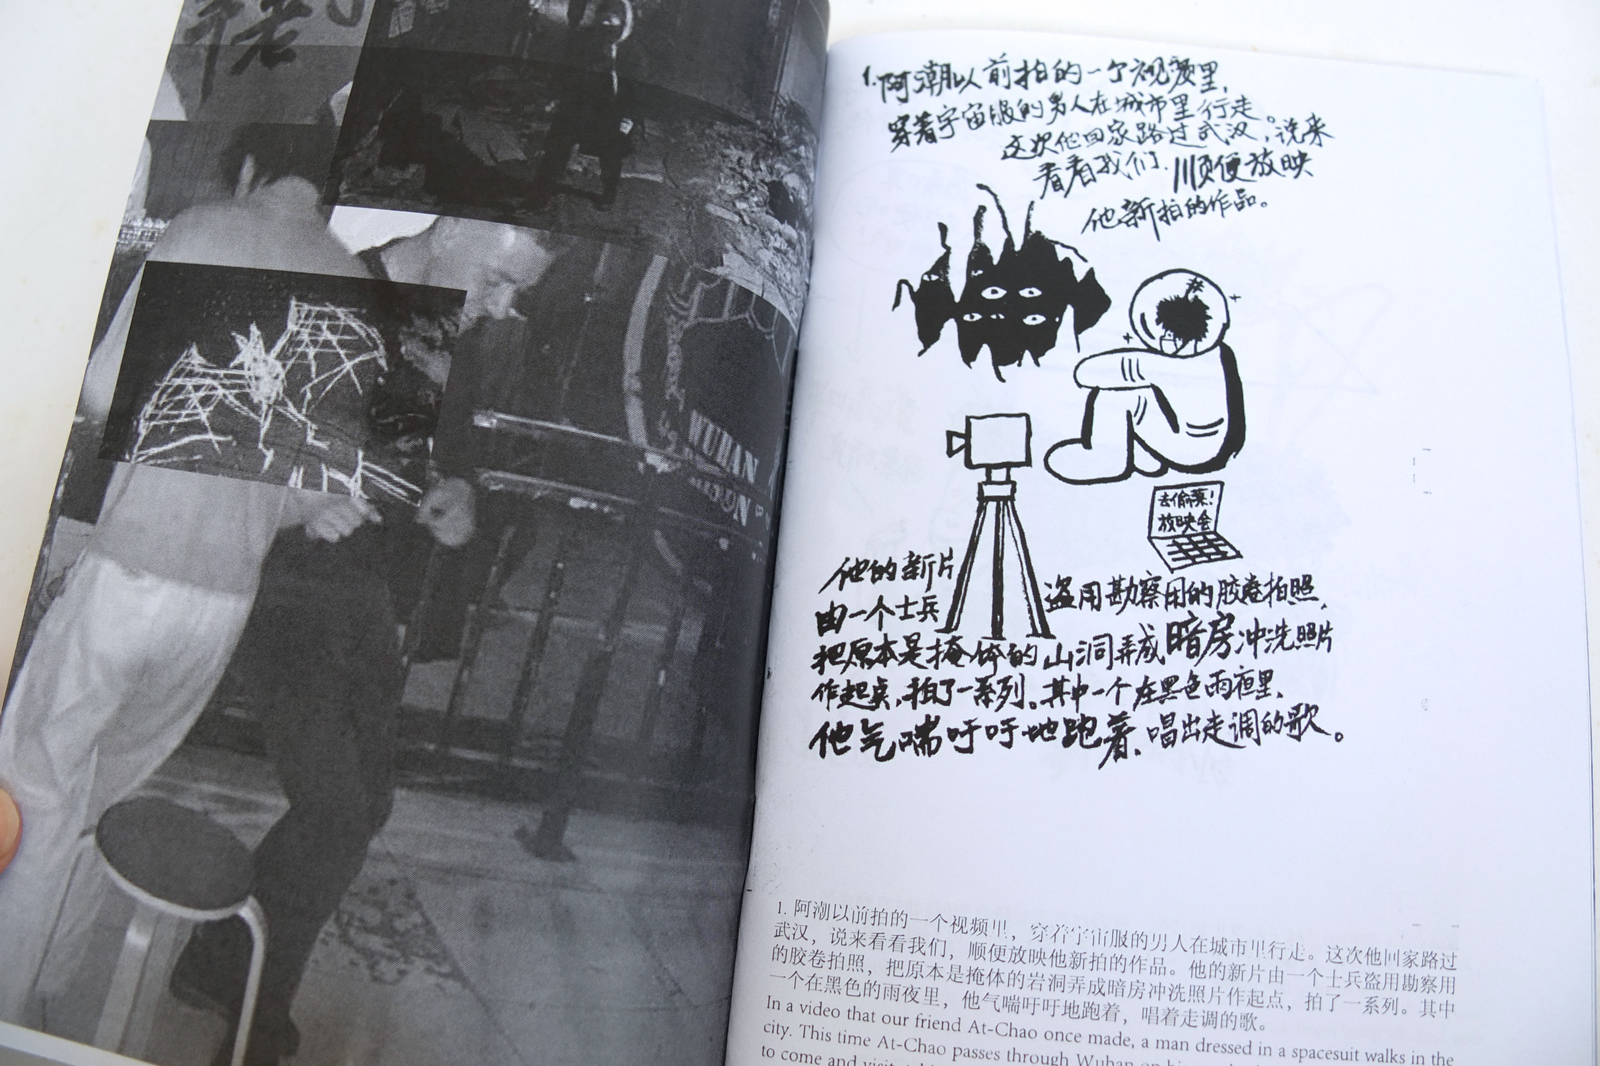 WUHAN
1.阿潮以前拍的一个视频里，
穿着宇宙服的男人在城市里行走。
这次他回家路过武汉，说来
看看我们，顺便放映
他新拍的作品。
去偷菜！
放映会
他的新片
由一个士兵
盗用勘察用的胶卷拍照，
把原本是掩体的山洞弄成暗房冲洗照片
作起点，拍了一系列。其中一个在黑色雨夜里，
他气喘吁吁地跑着，唱出走调的歌。
1. 阿潮以前拍的一个视频里，穿着宇宙服的男人在城市里行走。这次他回家路过
武汉，说来看看我们，顺便放映他新拍的作品。他的新片由一个士兵盗用勘察用
的胶卷拍照，把原本是掩体的岩洞弄成暗房冲洗照片作起点，拍了一系列。其中
一个在黑色的雨夜里，他气喘吁吁地跑着，唱着走调的歌。
In a video that our friend At-Chao once made, a man dressed in a spacesuit walks in the
city. This time At-Chao passes through Wuhan on
to come and visit